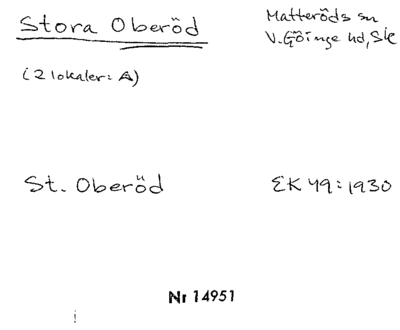 Stora Oberöd
Matteröds sn
V. Göinge hd, Sk
(2 lokaler: A)
St. Oberöd
EK 49:1930
Nr 14951